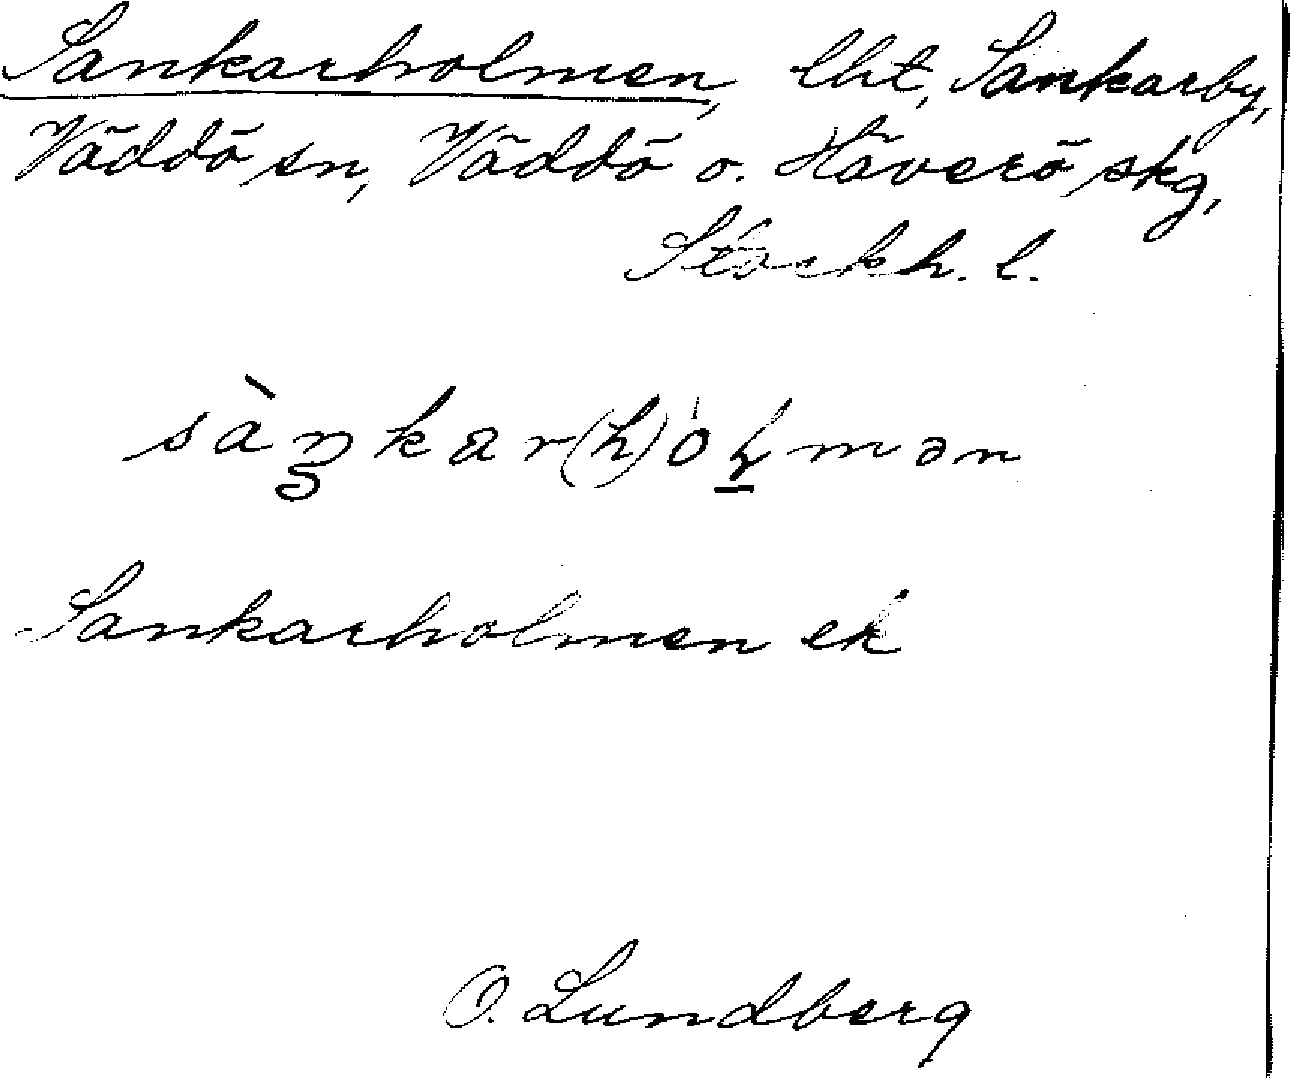 Sankarholmen, lht, Sankarby,
Väddö sn, Väddö o. Häverö skg,
Stockh. l.
sàŋkar(h)óɫmən
Sankarholmen ek
O. Lundberg